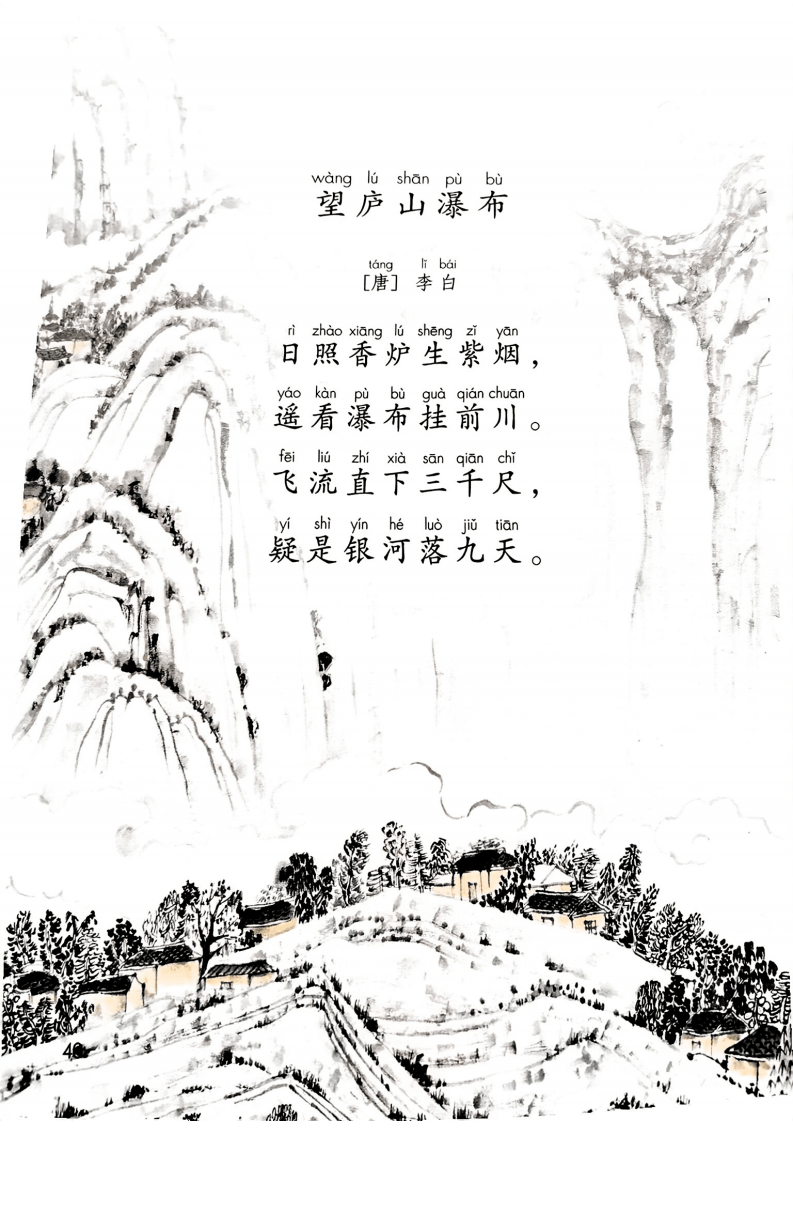 wàng lú shān pù bù
望庐山瀑布
táng lǐ bái
［唐］ 李白
rì zhào xiāng lú shēng zǐ yān
日照香炉生紫烟，
yáo kàn pù bù guà qián chuān
遥看瀑布挂前川。
fēi liú zhí xià sān qiān chǐ
飞流直下三千尺，
yí shì yín hé luò jiǔ tiān
疑是银河落九天。